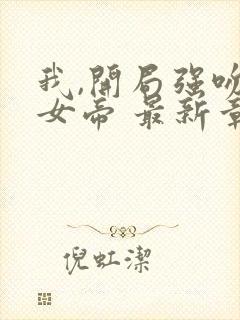 我,開局強吻
女帝 最新章
倪虹潔